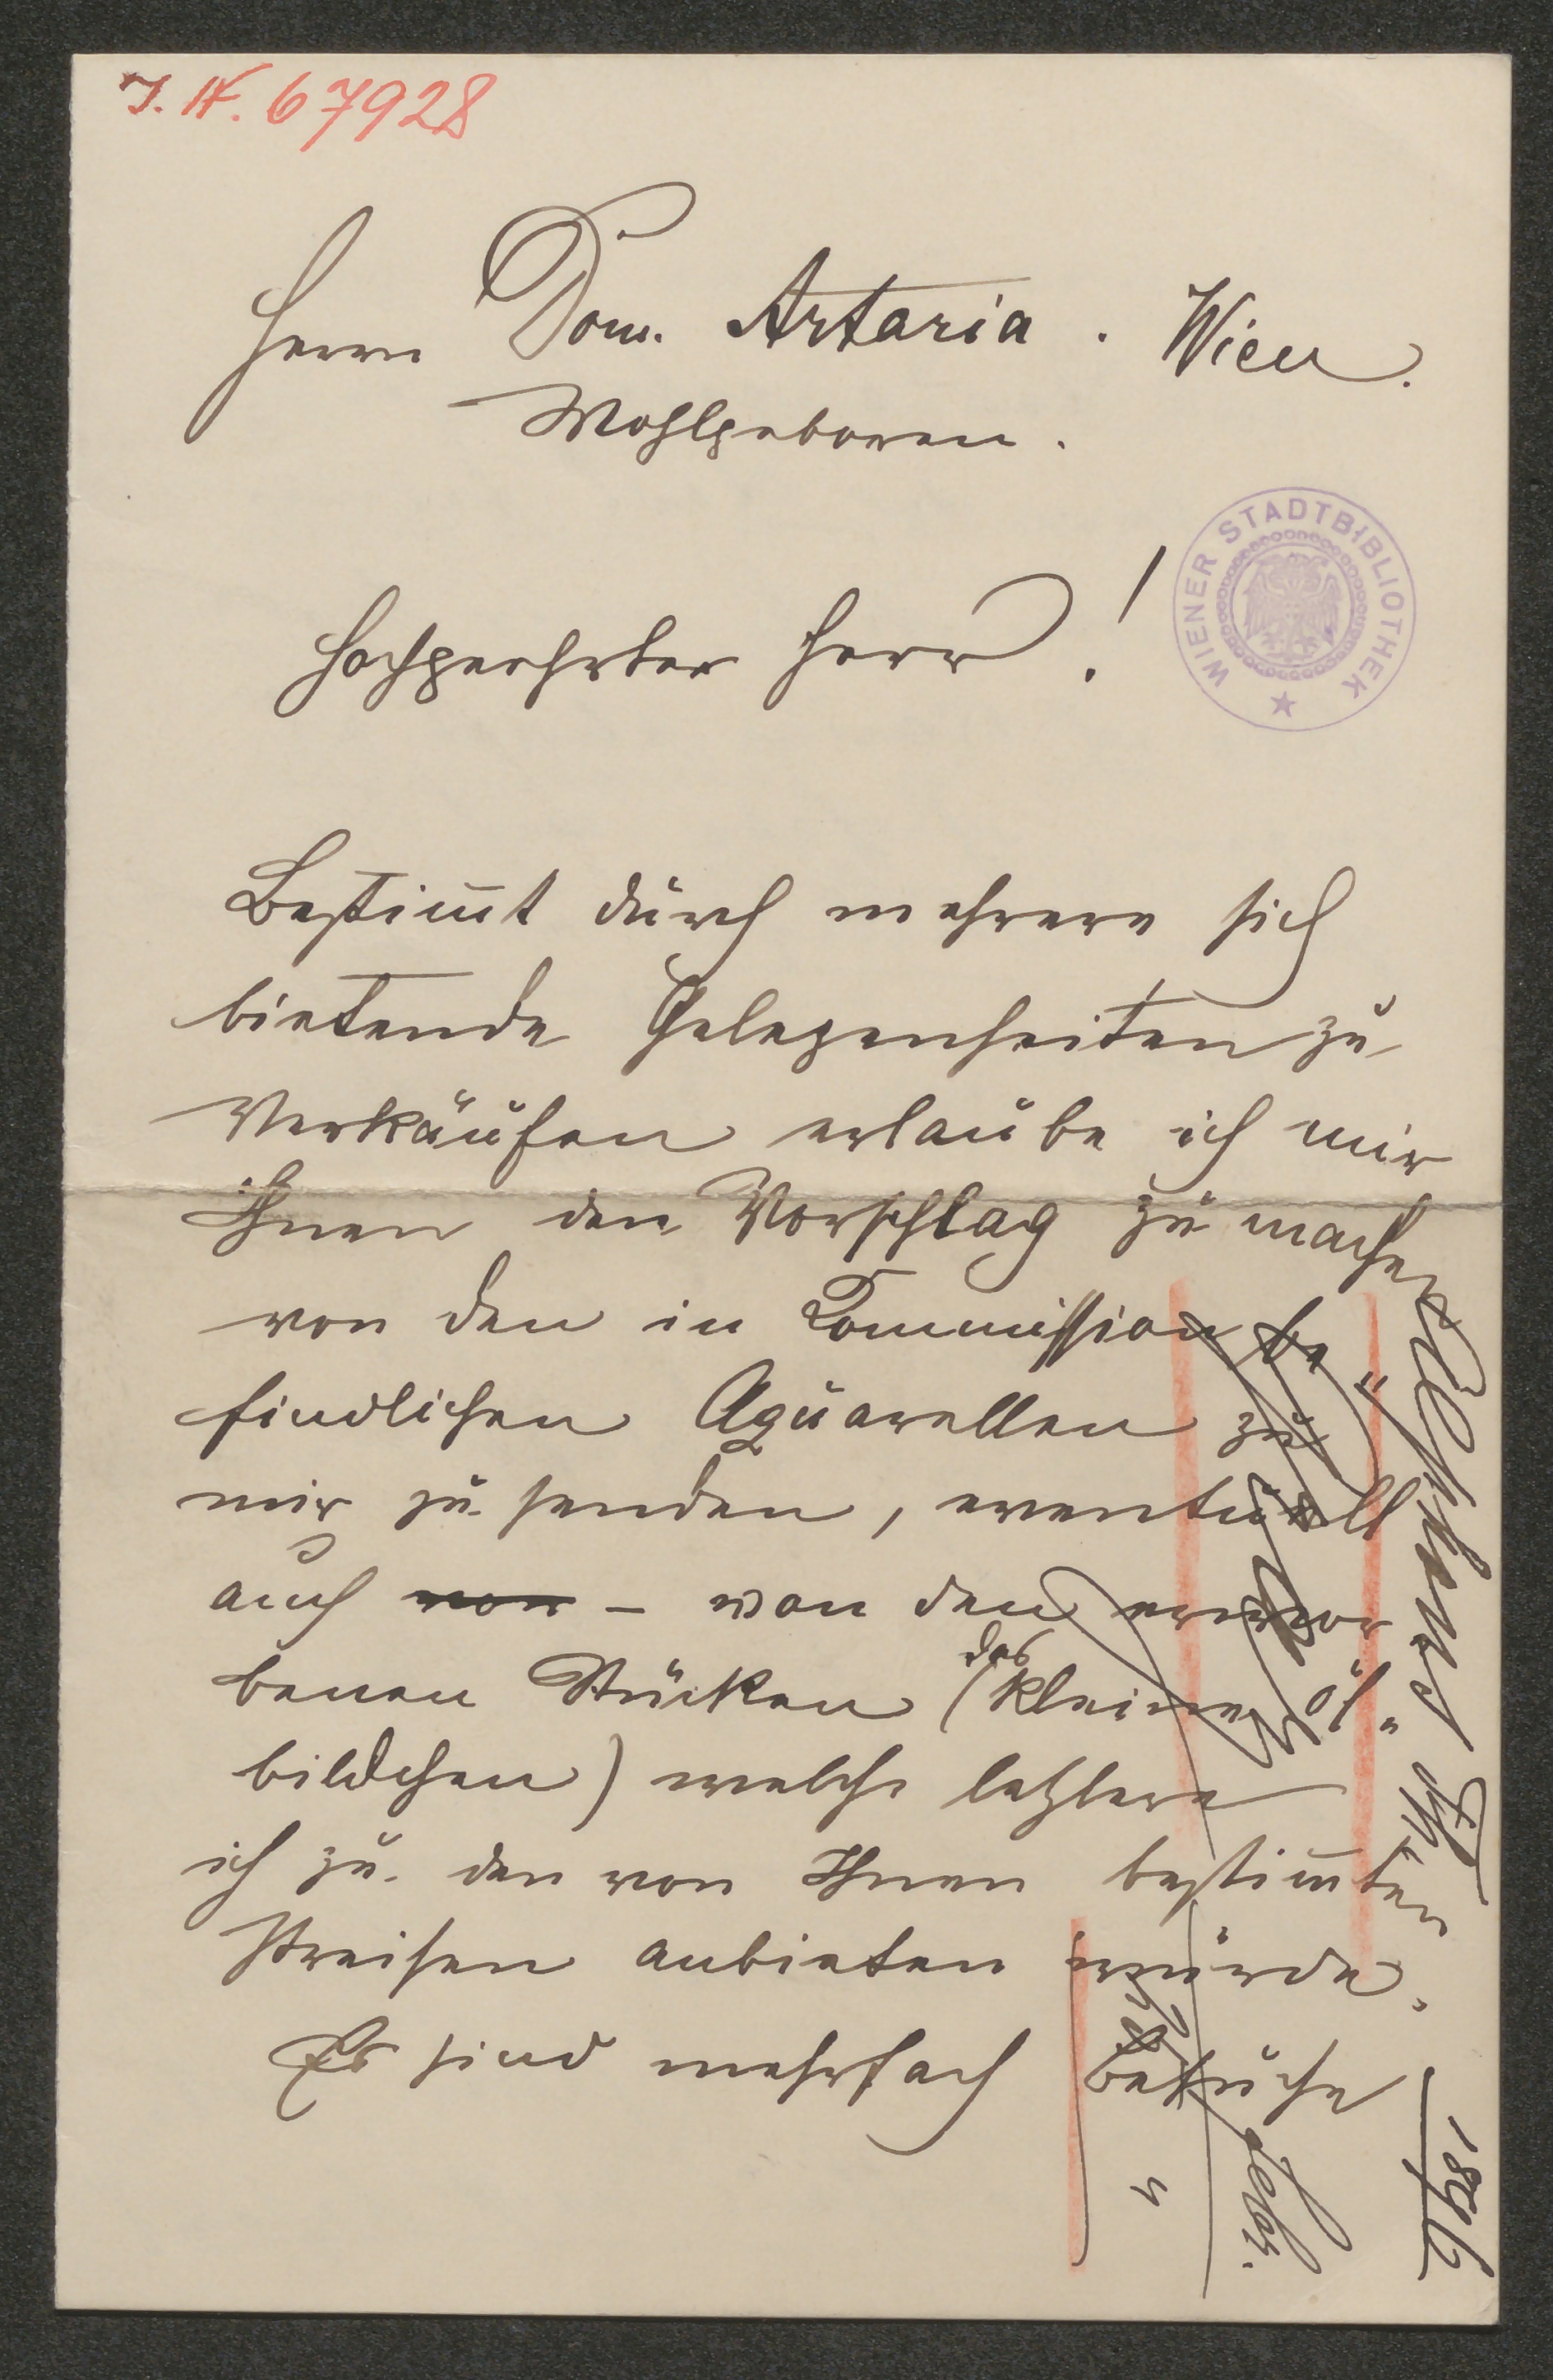 I. N. 67928
Herrn Dom. Artaria. Wien.
Wohlgeboren.
WIENER STADTBIBLIOTHEK
Hochgeehrter Herr!
Bestim̄t durch mehrere sich
bietende Gelegenheiten zu
Verkäufen erlaube ich mir
Ihnen den Vorschlag zu machen
von den in Commission be„
findlichen Aquarellen zu
mir zu senden, eventuell
auch von – von den erwor
benen Stücken (das kleine Öl„
bildchen) welche letztere
ich zu den von Ihnen bestim̄ten
Preisen anbieten würde.
Es sind mehrfach Besuche
1896